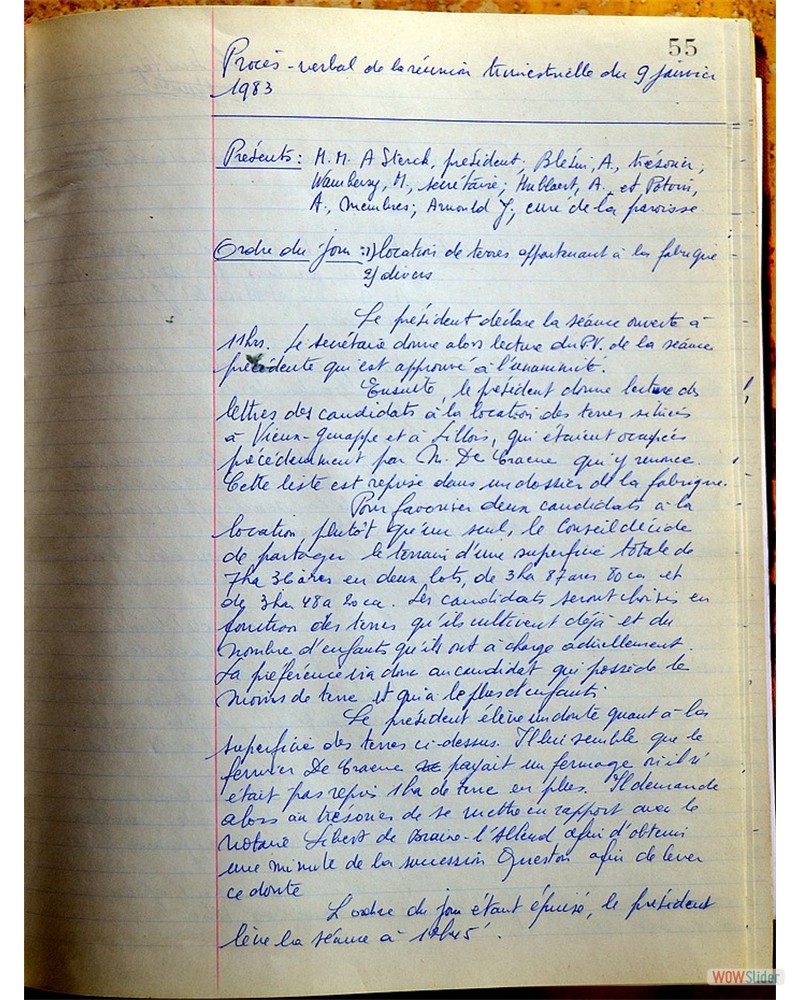 55
Procès-verbal de la réunion trimestrielle du 9 janvier
1983
Présents: M.M. A Sterck, président; Blésin, A., trésorier;
Wambersy, M., secrétaire; Hublaert, A. et Potvin,
A., membres; Arnould J; curé de la paroisse.
Ordre du jour: 1) location de terres appartenant à la fabrique
2) divers
Le président déclare la séance ouverte à
11hrs. Le secrétaire donne alors lecture du PV. de la séance
précédente qui est approuvé à l'unanimité.
Ensuite, le président donne lecture des
lettres des candidats à la location des terres situées
à Vieux-Genappe et à Lillois, qui étaient occupées
précédemment par M. De Craene qui y renonce.
Cette liste est reprise dans un dossier de la fabrique.
Pour favoriser deux candidats à la
location, plutôt qu'un seul, le Conseil décide
de partager le terrain d'une superficie totale de
7ha 36 ares en deux lots, de 3ha 87 ares 80 ca et
de 3ha 48a 20ca. Les candidats seront choisis en
fonction des terres qu'ils cultivent déjà et du
nombre d'enfants qu'ils ont à charge actuellement.
La préférence ira donc au candidat qui possède le
moins de terre et qui a le plus d'enfants.
Le président élève un doute quant à la
superficie des terres ci-dessus. Il lui semble que le
fermier De Craene payait un fermage où il n'
était pas repris 1ha de terre en plus. Il demande
alors au trésorier de se mettre en rapport avec le
notaire Libert de Braine-l'Alleud afin d'obtenir
une minute de la succession Queston afin de lever
ce doute
L'ordre du jour étant épuisé, le président
lève la séance à
WOWSlider